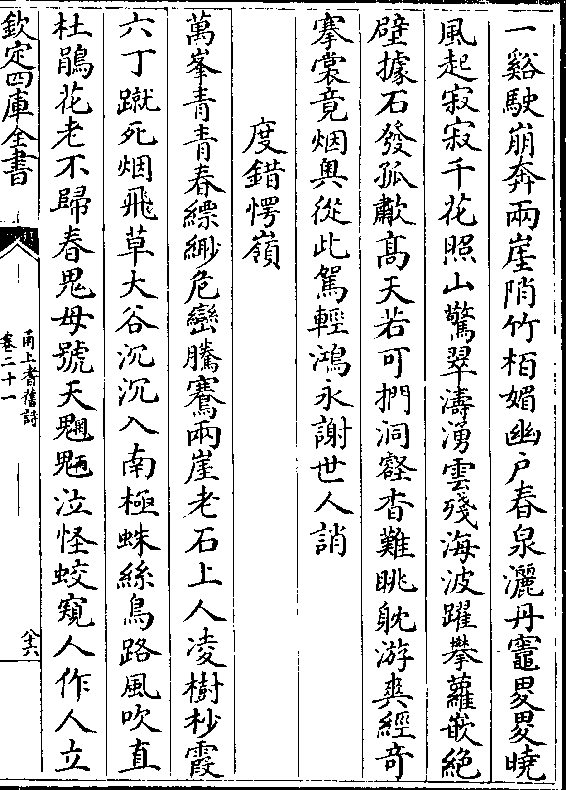 一谿駛崩奔兩崖陗竹栢媚幽戶春泉灑丹竈畟畟曉
風起寂寂千花照山驚翠濤湧雲殘海波躍攀蘿嵌絶
壁據石發孤歗髙天若可捫洞壑杳難眺躭游喪經奇
搴裳竟烟輿從此駕輕鴻永謝世人誚
度錯愕嶺
萬峯青青春縹緲危巒騰騫兩崖老石上人凌樹杪霞
六丁蹴死烟飛草大谷沉沉入南極蛛絲鳥路風吹直
杜鵑花老不歸春鬼母號天魍魎泣怪蛟窺人作人立
欽定四庫全書
甬上耆舊詩
卷二十一